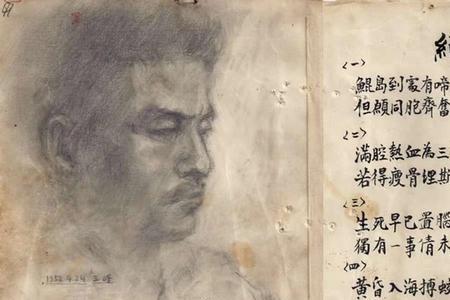 1952.4.24
<一>
鯤島到處有啼
但願同胞齊奮
<二>
滿腔熱血為三
若得瘦骨埋斯
<三>
生死早已置腦
獨有一事情未
<四>
黃昏入海搏